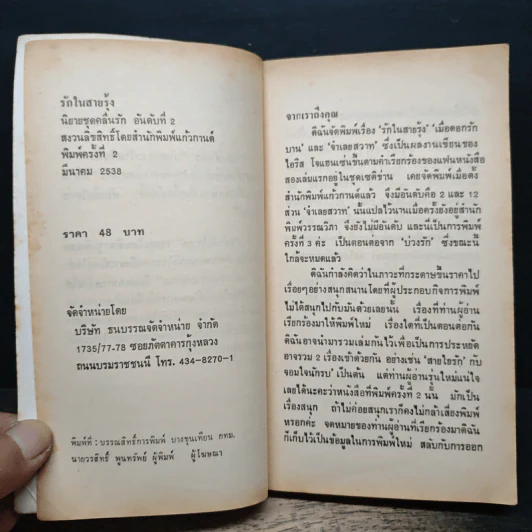 รักในสายรุ้ง
นิยายชุดคลื่นรัก อันดับที่ 2
สงวนลิขสิทธิ์โดยสำนักพิมพ์แก้วกานต์
พิมพ์ครั้งที่ 2
มีนาคม 2538
ราคา 48 บาท
จัดจำหน่ายโดย
บริษัท ธนบรรณจัดจำหน่าย จำกัด
1735/77-78 ซอยภัตตาคารกุ้งหลวง
ถนนบรมราชชนนี โทร. 434-8270-1
พิมพ์ที่ : บรรณสิทธิ์การพิมพ์ บางขุนเทียน กทม.
นายวรสิทธิ์ พูนทรัพย์ ผู้พิมพ์ ผู้โฆษณา
จากเราถึงคุณ
ดิฉันจัดพิมพ์เรื่อง 'รักในสายรุ้ง' 'เมื่อดอกรัก
บาน' และ 'จำเลยสวาท' ซึ่งเป็นผลงานเขียนของ
ไอริส โจแฮนเซ่นขึ้นตามคำเรียกร้องของแฟนหนังสือ
สองเล่มแรกอยู่ในชุดเซดิข่าน โดยจัดพิมพ์เมื่อตั้ง
สำนักพิมพ์แก้วกานต์แล้ว จึงมีอันดับคือ 2 และ 12
ส่วน 'จำเลยสวาท' นั้นแปลไว้นานเมื่อครั้งยังอยู่สำนัก
พิมพ์วรรณวิภา จึงยังไม่มีอันดับ และนี่เป็นการพิมพ์
ครั้งที่ 3 ค่ะ เป็นตอนต่อจาก 'บ่วงรัก' ซึ่งขณะนี้
ใกล้จะหมดแล้ว
ดิฉันกำลังคิดว่าในภาวะที่กระดาษขึ้นราคาไป
เรื่อยๆอย่างสนุกสนานโดยที่ผู้ประกอบกิจการพิมพ์
ไม่ได้สนุกไปกับมันด้วยเลยนั้น เรื่องที่ท่านผู้อ่าน
เรียกร้องมาให้พิมพ์ใหม่ เรื่องใดที่เป็นตอนต่อกัน
ดิฉันอาจนำมารวมเล่มกันไว้เพื่อเป็นการประหยัด
อาจรวม 2 เรื่องเข้าด้วยกัน อย่างเช่น 'สายใยรัก' กับ
จอมใจนักรบ' เป็นต้น แต่ท่านผู้อ่านรุ่นใหม่แน่ใจ
เลยได้นะคะว่าหนังสือที่พิมพ์ครั้งที่ 2 นั้น มักเป็น
เรื่องสนุก ถ้าไม่ค่อยสนุกเราก็คงไม่กล้าเสี่ยงพิมพ์
หรอกค่ะ จดหมายของท่านผู้อ่านที่เรียกร้องมาดิฉัน
ก็เก็บไว้เป็นข้อมูลในการพิมพ์ใหม่ สลับกับการออก